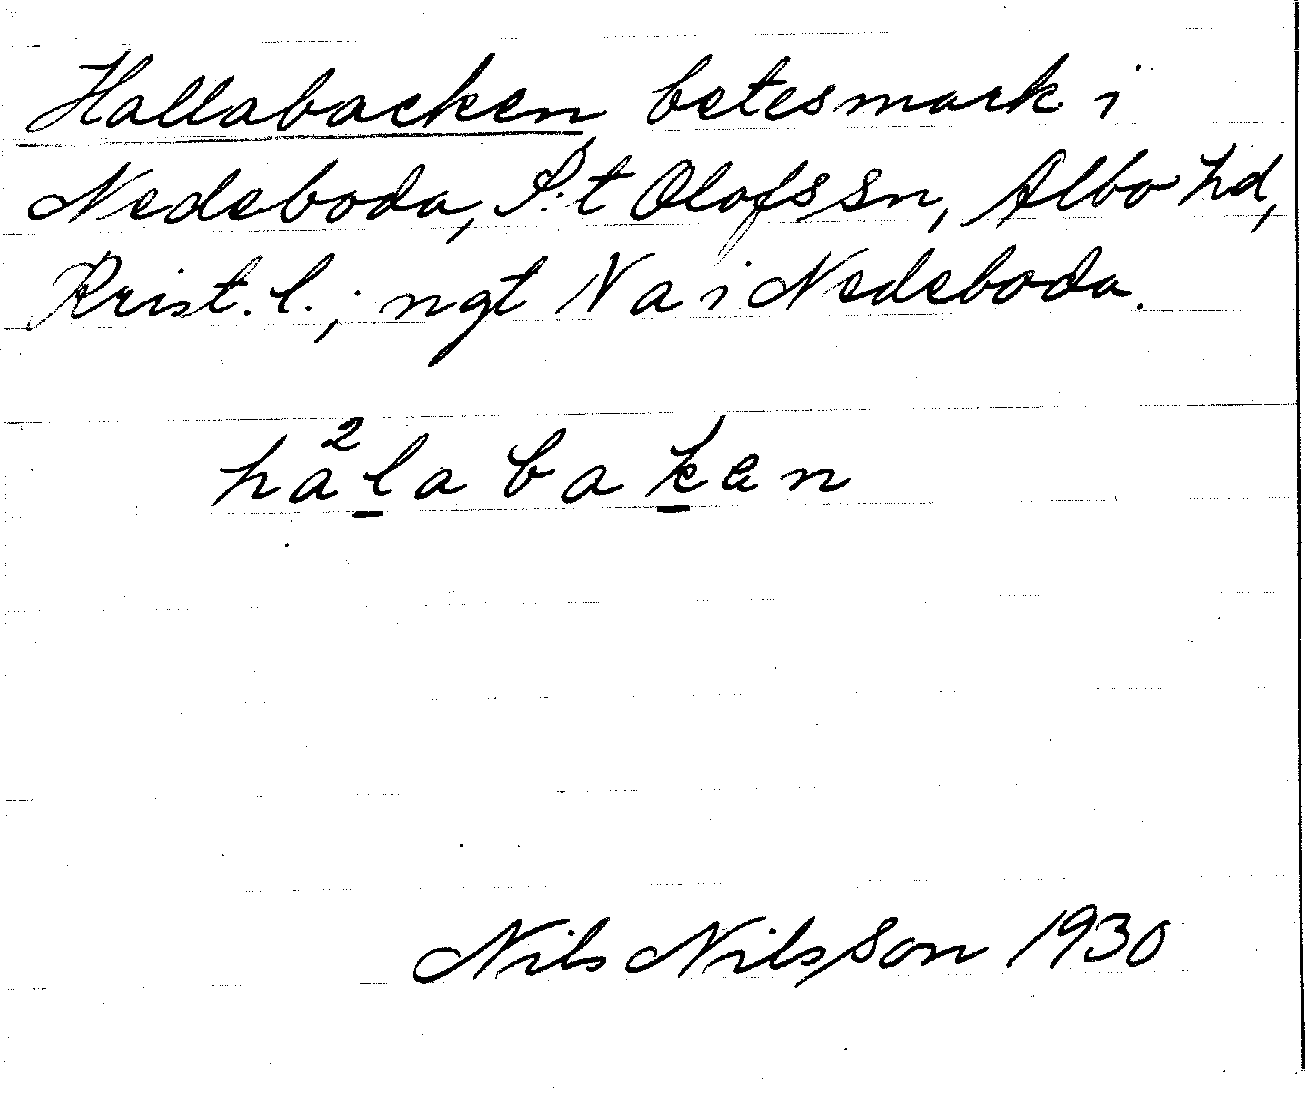 Hallabacken betesmark i
Nedeboda, S:t Olofs sn, Albo hd,
Krist. l.; ngt N a i Nedeboda.
ha²l̲a bak̲en
Nils Nilsson 1930